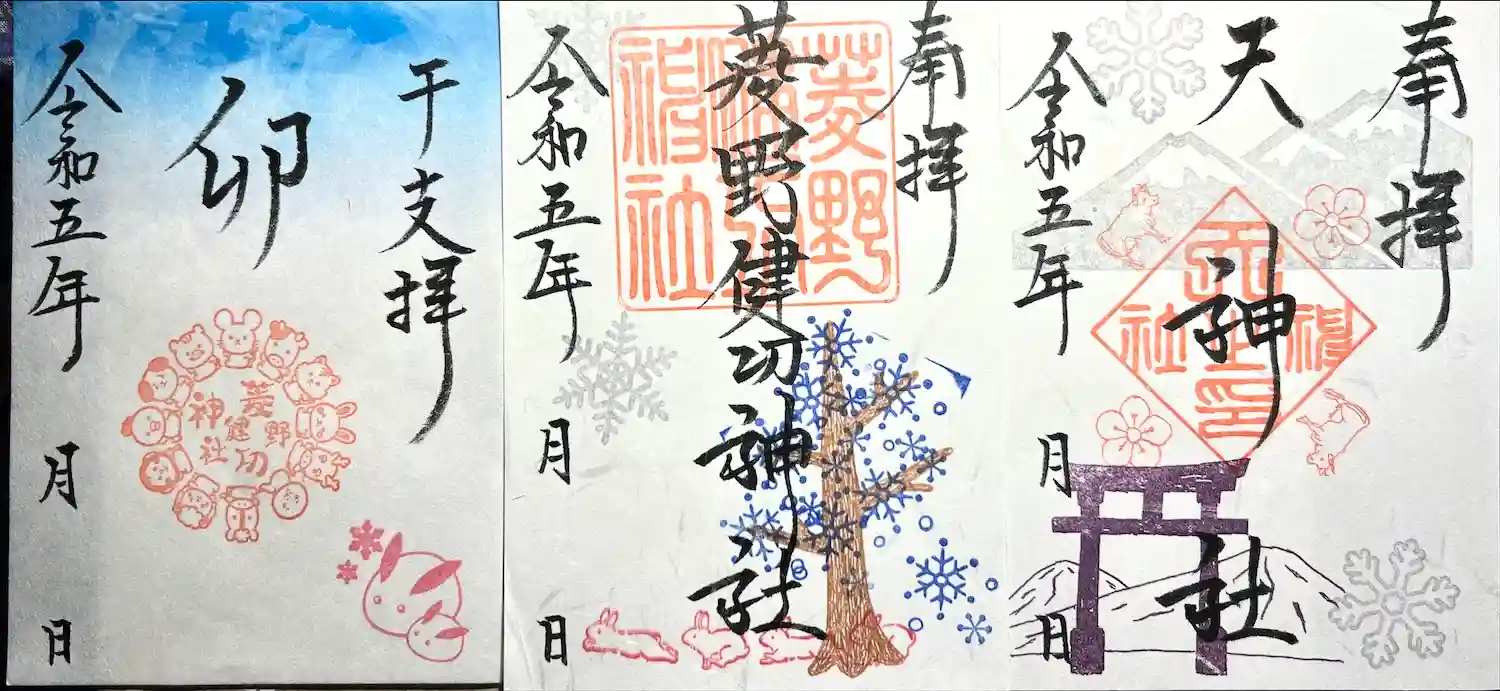 奉拝
天神社
天神社之印
令和五年 月 日
奉拝
菱野健功神社
菱野健功神社
令和五年 月 日
干支拝
卯
菱野健功神社
令和五年 月 日